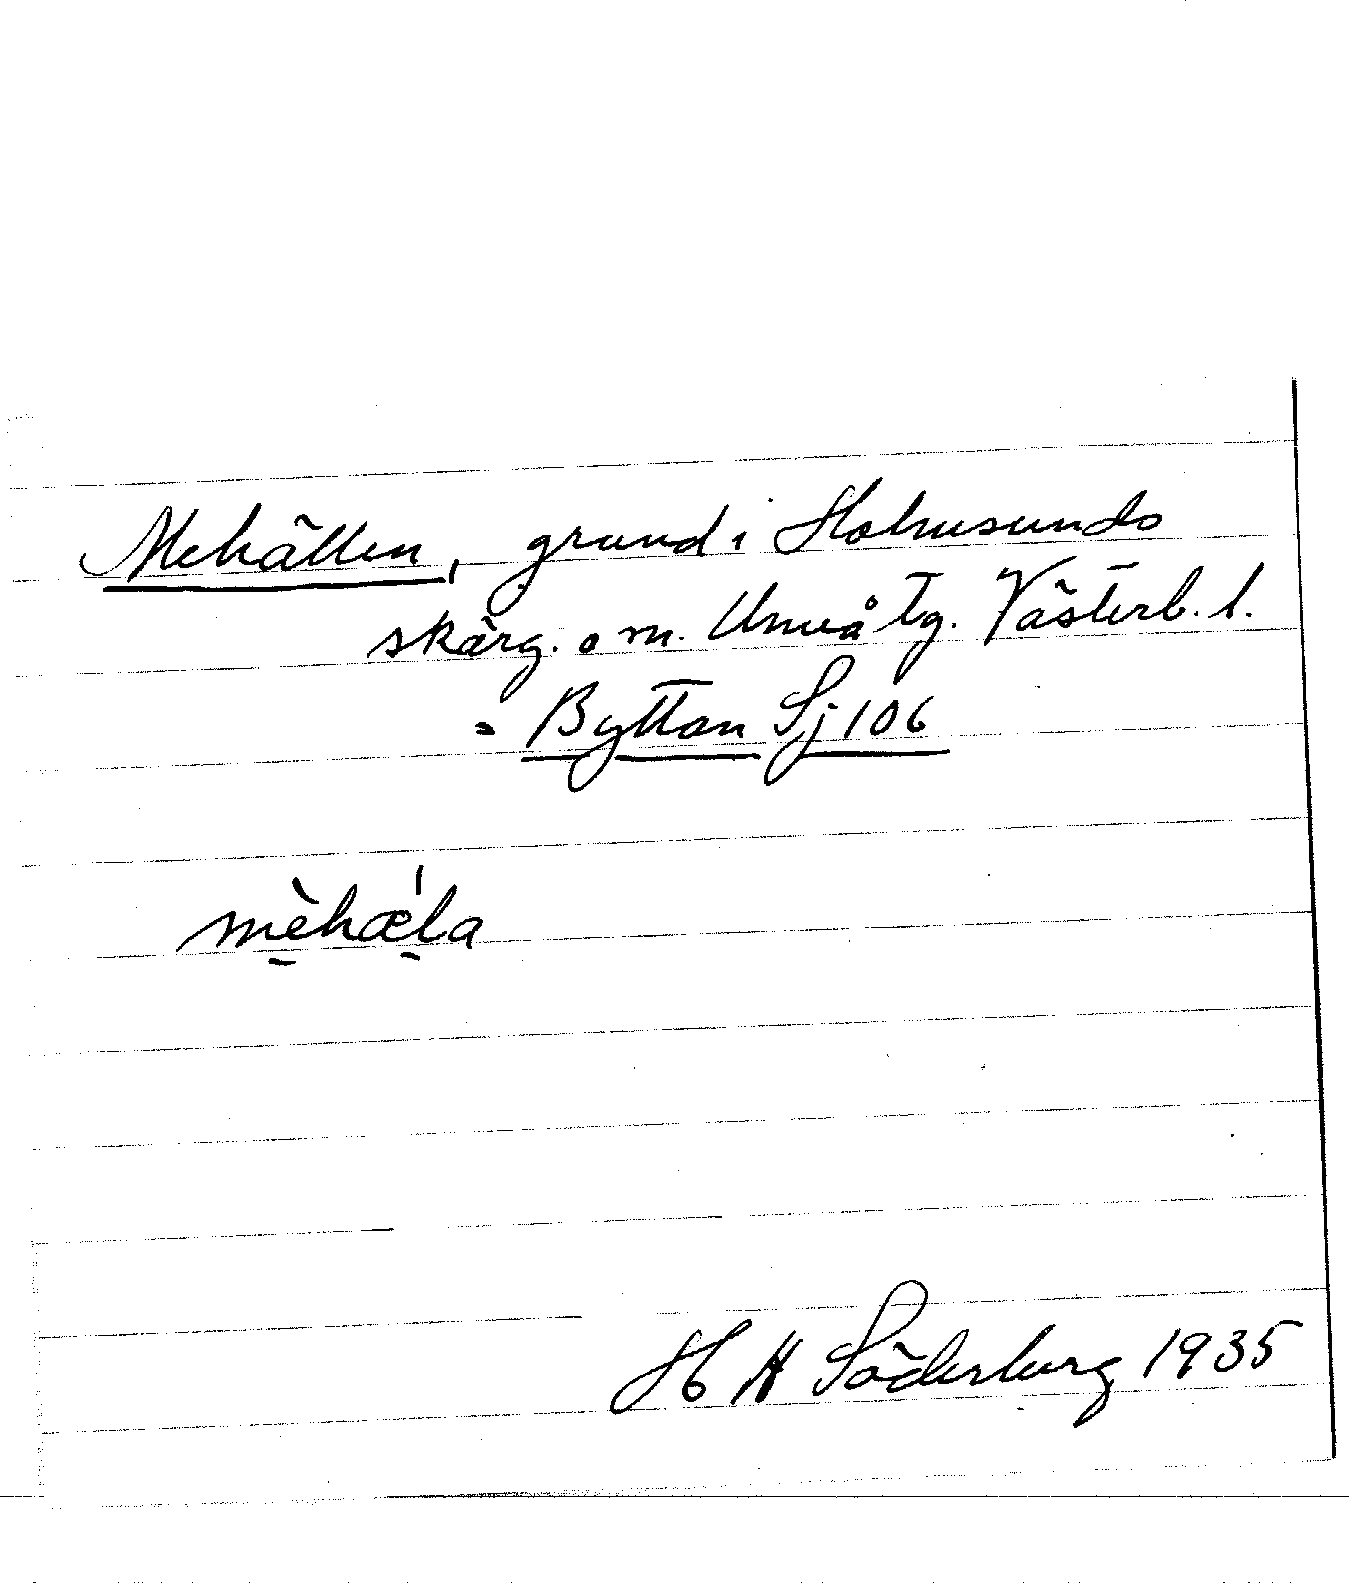 Mehällen, grund i Holmsunds
skärg. o m. Umeå tg. Västerb. l.
= Byttan Sj 106
mè̱hǽ̱la
H H Söderberg 1935